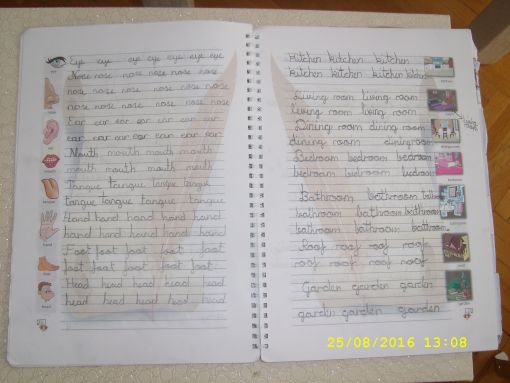 Eye eye eye eye eye eye eye
Nose nose nose nose nose nose
nose nose nose nose nose nose
nose nose nose nose nose nose
Ear ear ear ear ear ear ear
ear ear ear ear ear ear ear
Mouth mouth mouth mouth
mouth mouth mouth mouth
Tongue tongue tongue tongue
tongue tongue tongue tongue
Hand hand hand hand hand
hand hand hand hand hand
Foot foot foot foot foot
foot foot foot foot foot
Head head head head head
head head head head head
kitchen kitchen kitchen
kitchen kitchen kitchen kitchen
Living room living room
living room living room
Dining room dining room
dining room diningroom
Bedroom bedroom bedroom
bedroom bedroom bedroom
Bathroom bathroom
bathroom bathroom bathroom
bathroom bathroom bathroom
Roof roof roof roof
roof roof roof roof
Garden garden garden
garden garden garden
25/08/2016 13:08